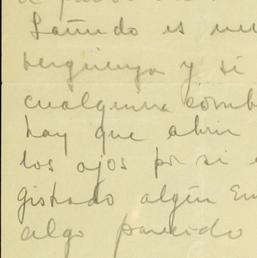 Latindo es un
berguenza y si
cualquiera comb
hay que abrir
los ojos por si
gistrado algún Em
algo parecido